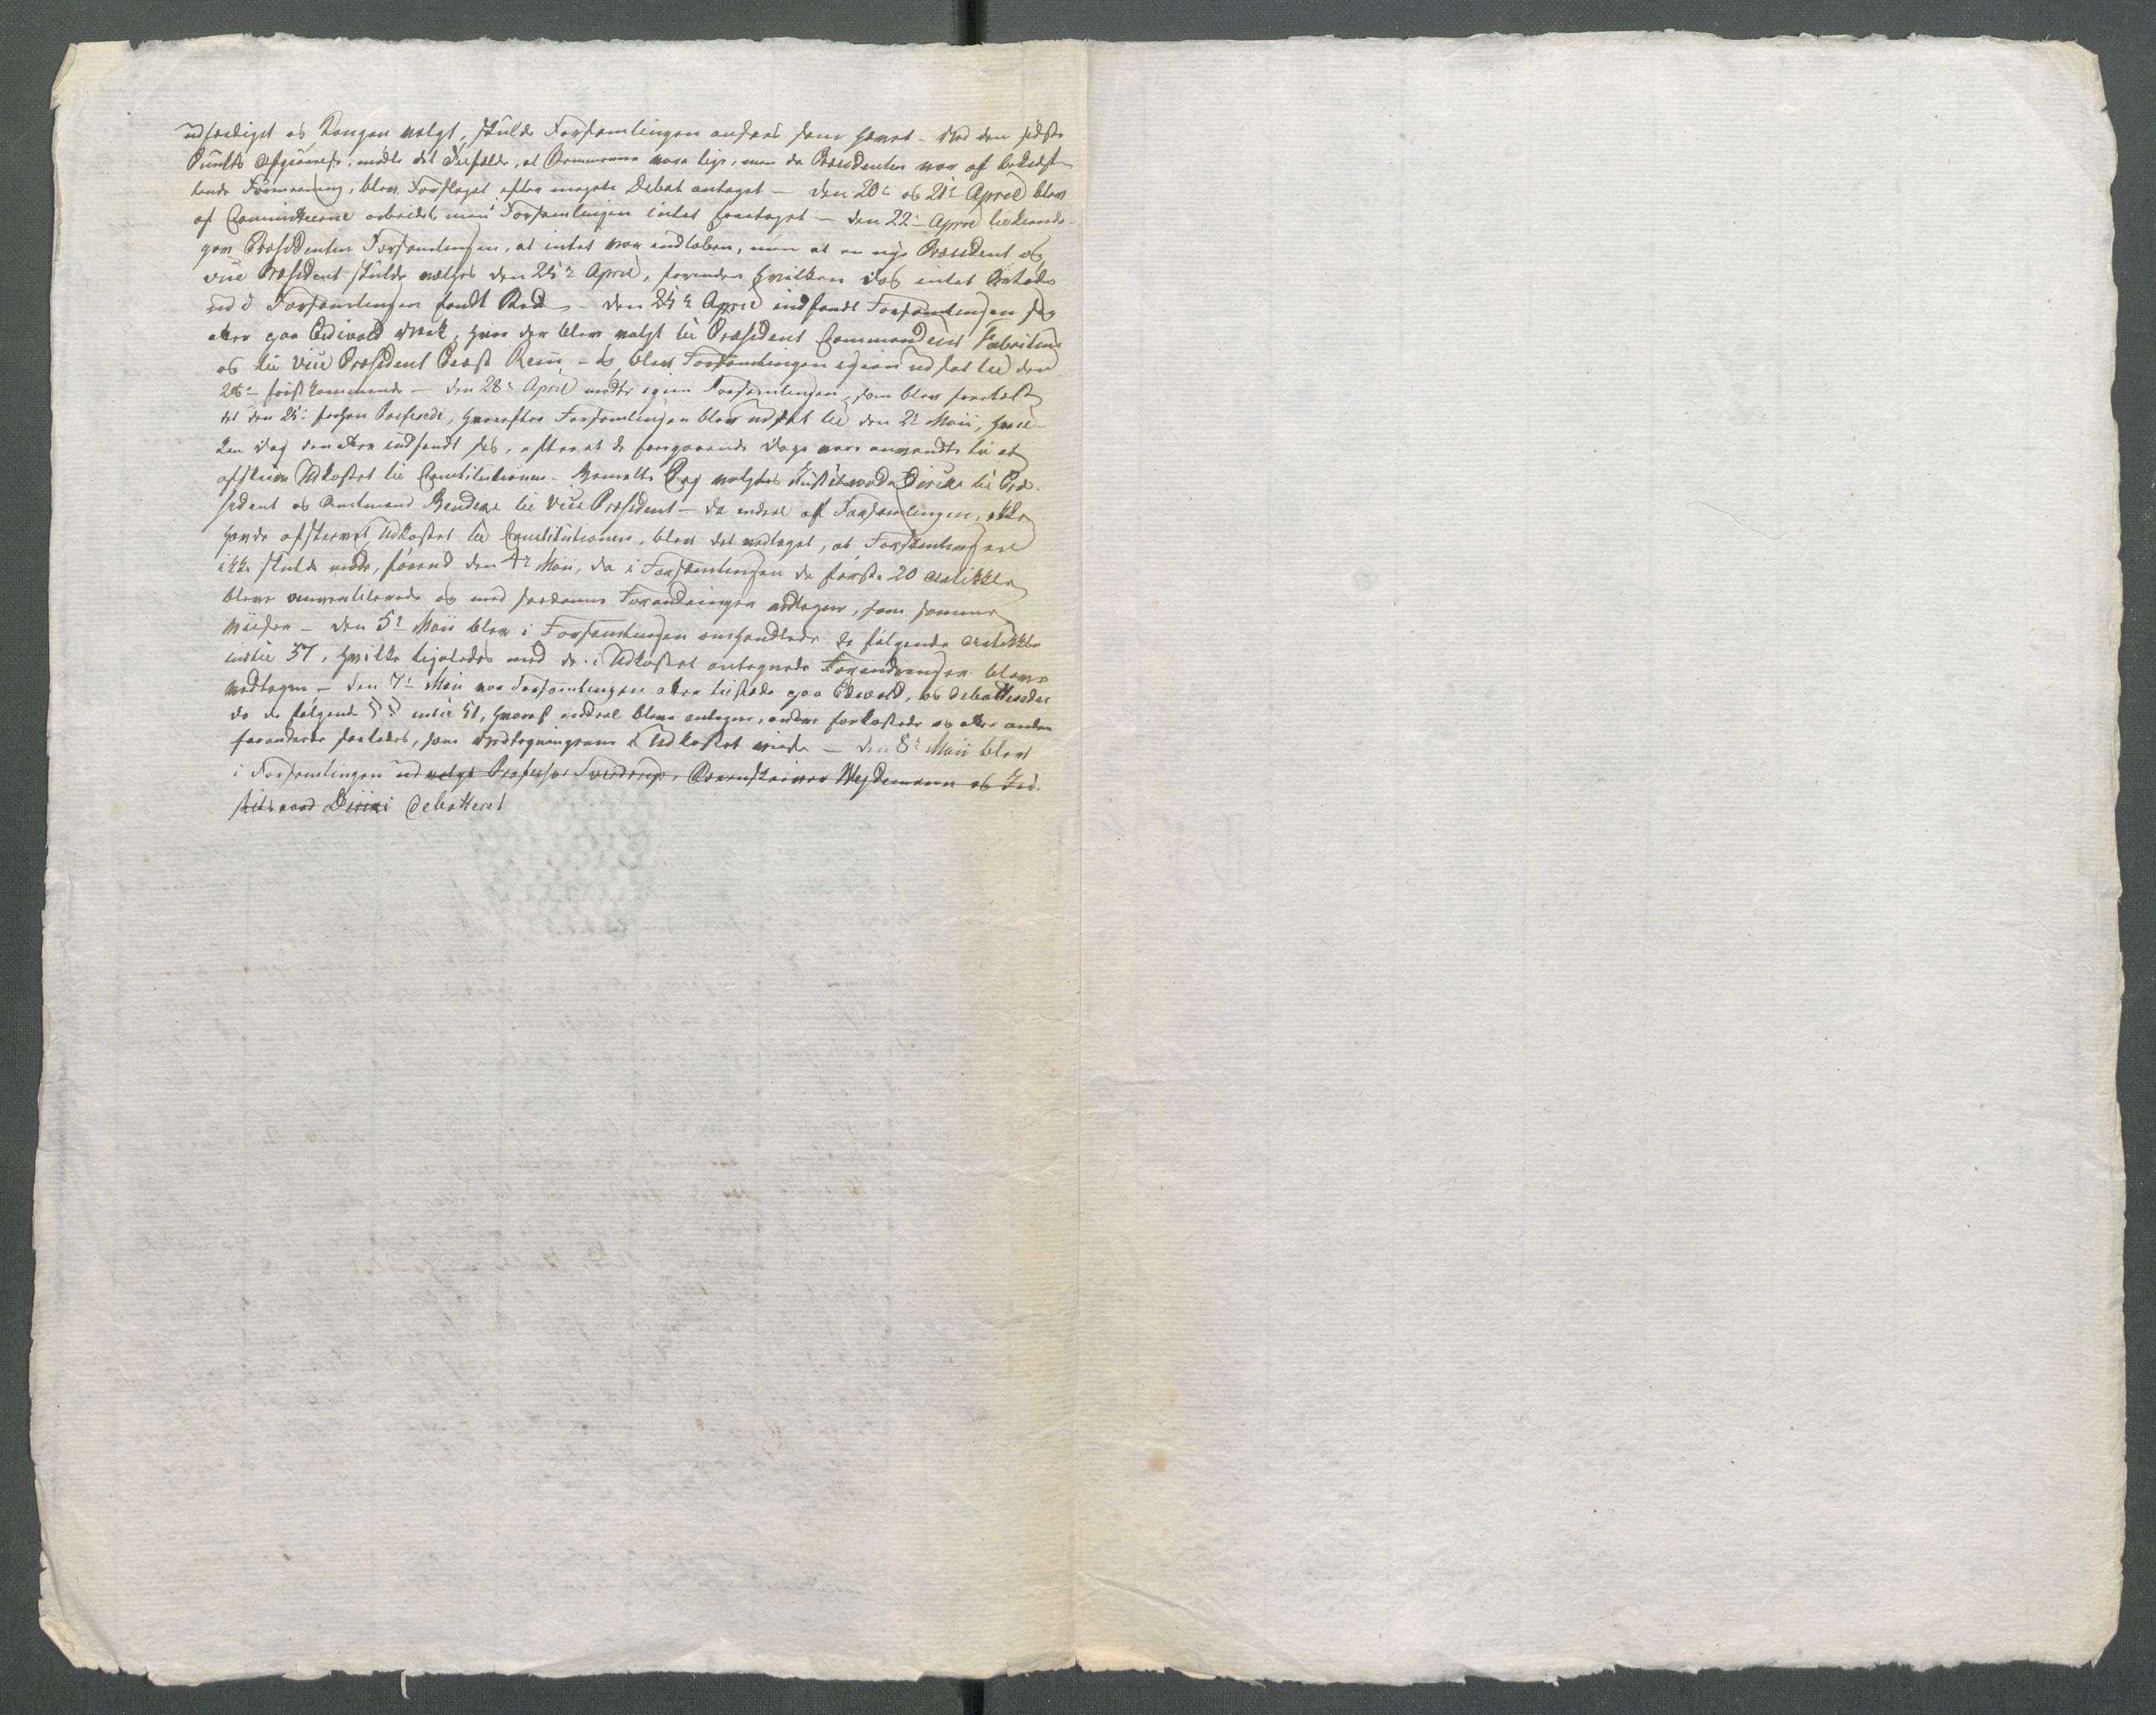 udfærdiget og Kongen valgt, skulde Forsamlingen ansees som hævet - Ved den sidste
Puncts Afgiørelse, mødte det Tilfælde, at Stemmerne vare lige, men da Præsidenten var af bekræft-
tende Formeening, blev Forslaget efter megen Debat antaget - den 20de og 21de April blev
af Committeerne arbeidet, men i Forsamlingen intet foretaget - den 22de April tilkiende-
gav Præsidenten Forsamlingen, at intet var indløben, men at en nye Præsident og
vice Præsident skulde vælges den 25de April, forinden hvilken Dag intet Møde
ud i Forsamlingen fandt Sted - den 25de April indfandt Forsamlingen sig
atter paa Eidsvold Værk, hvor der blev valgt til Præsident Commandeur Fabritius
og til Vice Præsident Præst Rein, - og blev Forsamlingen igien udsat til den
28de førstkommende - den 28de April mødte igien Forsamlingen, som blev forelæst
det den 25de forhen Passerede, hvorefter Forsamlingen blev udsat til den 2de Maii, hvil-
ken Dag den atter indfandt sig, efter at de foregaaende Dage vare anvendte til at
afskrive Udkastet til Constitutionen - bemeldte Dag valgtes Justitsraad Diriks til Præ-
sident og Amtmand Bendeke til Vice Præsident - da endeel af Forsamlingen, ikke
havde afskrevet Udkastet til Constitutionen, blev det vedtaget, at Forsamlingen
ikke skulde møde, førend den 4de Maii, da i Forsamlingen de første 20 Artikkler
bleve omventilerede og med saadanne Forandringer vedtagne, som samme
viiser - den 5te Maii blev i Forsamlingen omhandlede de følgende Artikkler
indtil 37, hvilke ligeledes med de i Udkastet antegnede Forandringer bleve
vedtagne - den 7de Maii var Forsamlingen atter tilstæde paa Edsvold, og debatteredes
da de følgende § § indtil 51, hvoraf endeel bleve antagne, andre forkastede og atter andre
forandrede saaledes, som Vedtegningerne i Udkastet viiser - den 8de Maii blev
i Forsamlingen udvalgt Professor Sverdrup, Sorenskriver Weydemann og Ju-
stitsraad Diriks debatteret